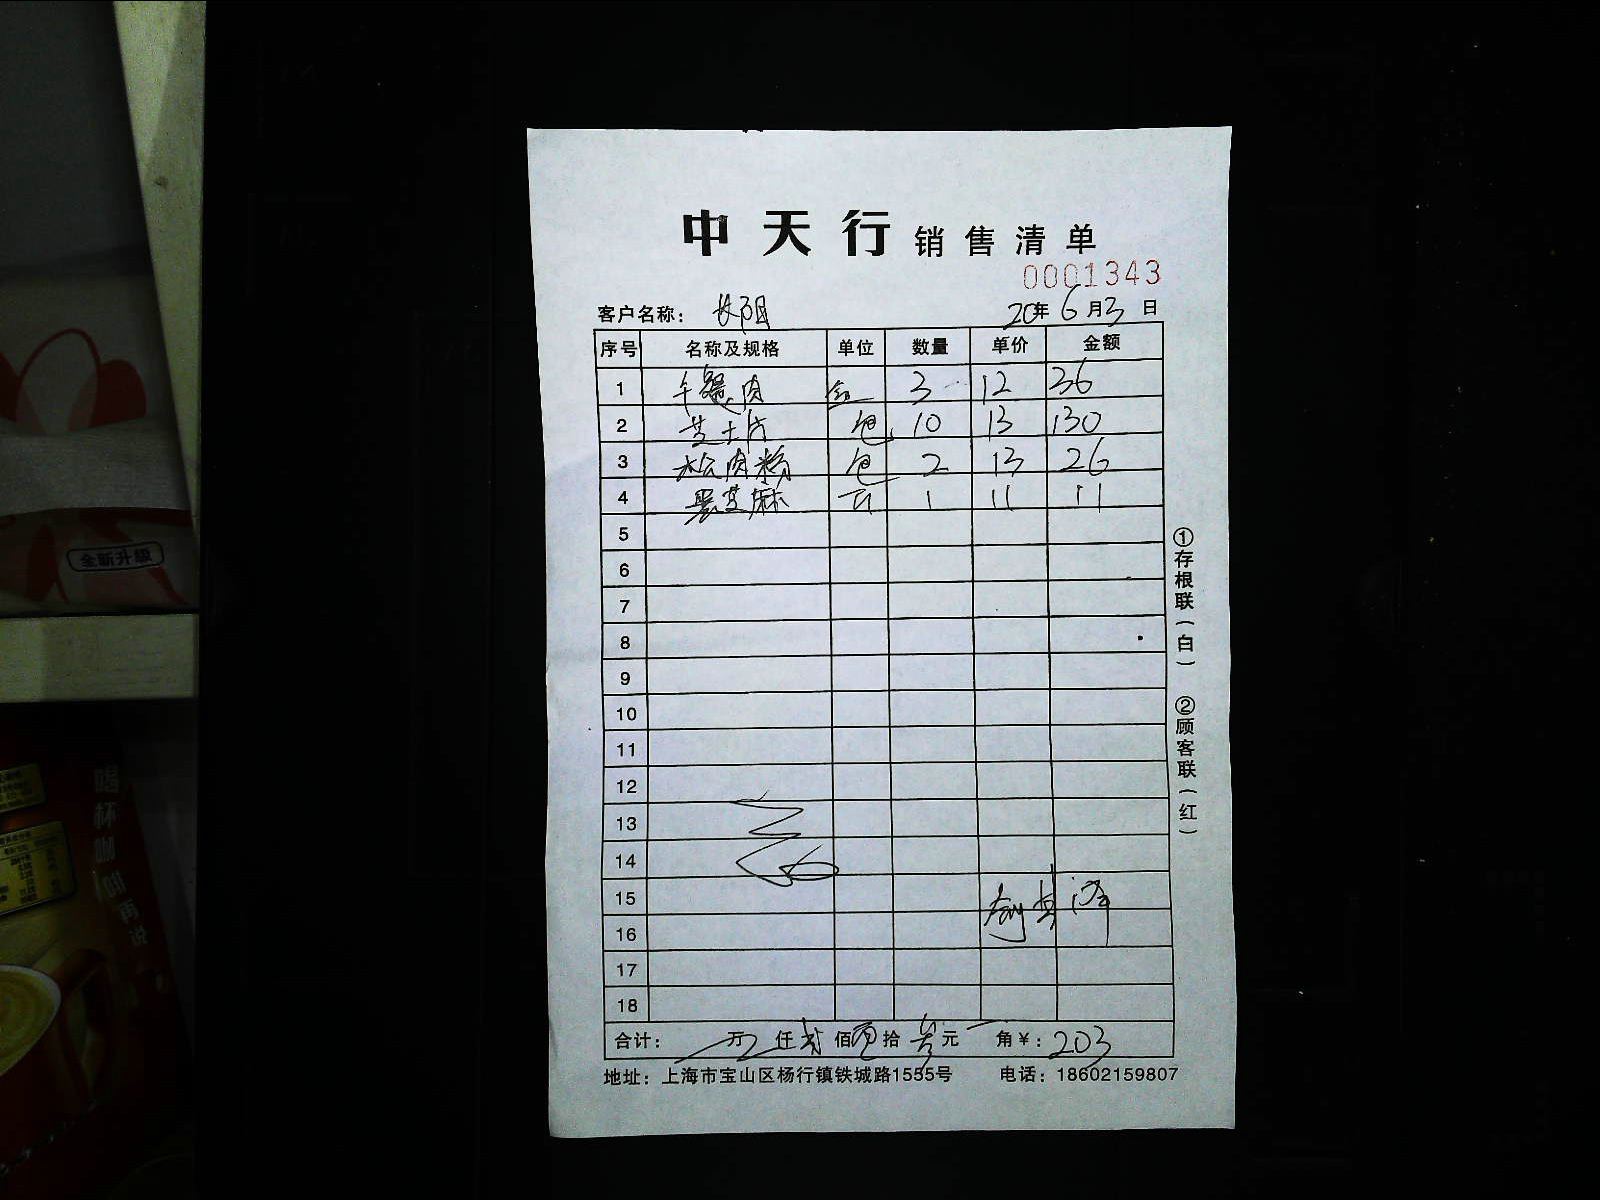 中天行 销售清单
0001343
客户名称： 长阳 20年6月3日
序号 名称及规格 单位 数量 单价 金额
1 午餐肉 盒 3 12 36
2 芝士片 包 10 13 130
3 松肉粉 包 2 13 26
4 黑芝麻 斤 1 11 11
5
6
7
8
9
10
11
12
13
14
15
16
17
18
合计： 万 仟 贰佰 零拾 叁元 角￥：203
地址：上海市宝山区杨行镇铁城路1555号 电话：18602159807
①存根联（白） ②顾客联（红）
全新升級
喝杯咖啡再说